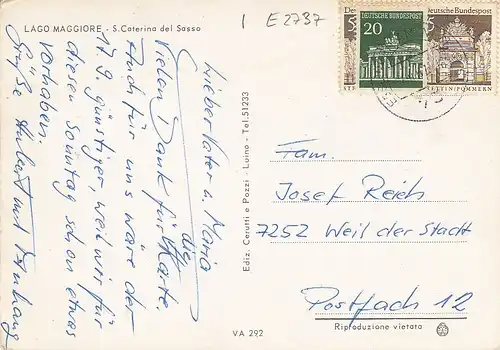 I E 2737
LAGO MAGGIORE - S. Caterina del Sasso
Lieber Vater u. Maria
Vielen Dank für die Karte.
Auch für uns wäre der
17.9. günstiger, weil wir für
diesen Sonntag schon etwas
vorhaben.
Grüße Hubert mit Anhang
Ediz. Cerutti e Pozzi - Luino - Tel. 51233
DEUTSCHE BUNDESPOST
20
Deutsche Bundespost
5
STETTIN/POMMERN
Fam.
Josef Reich
7252 Weil der Stadt
Postfach 12
VA 292
Riproduzione vietata